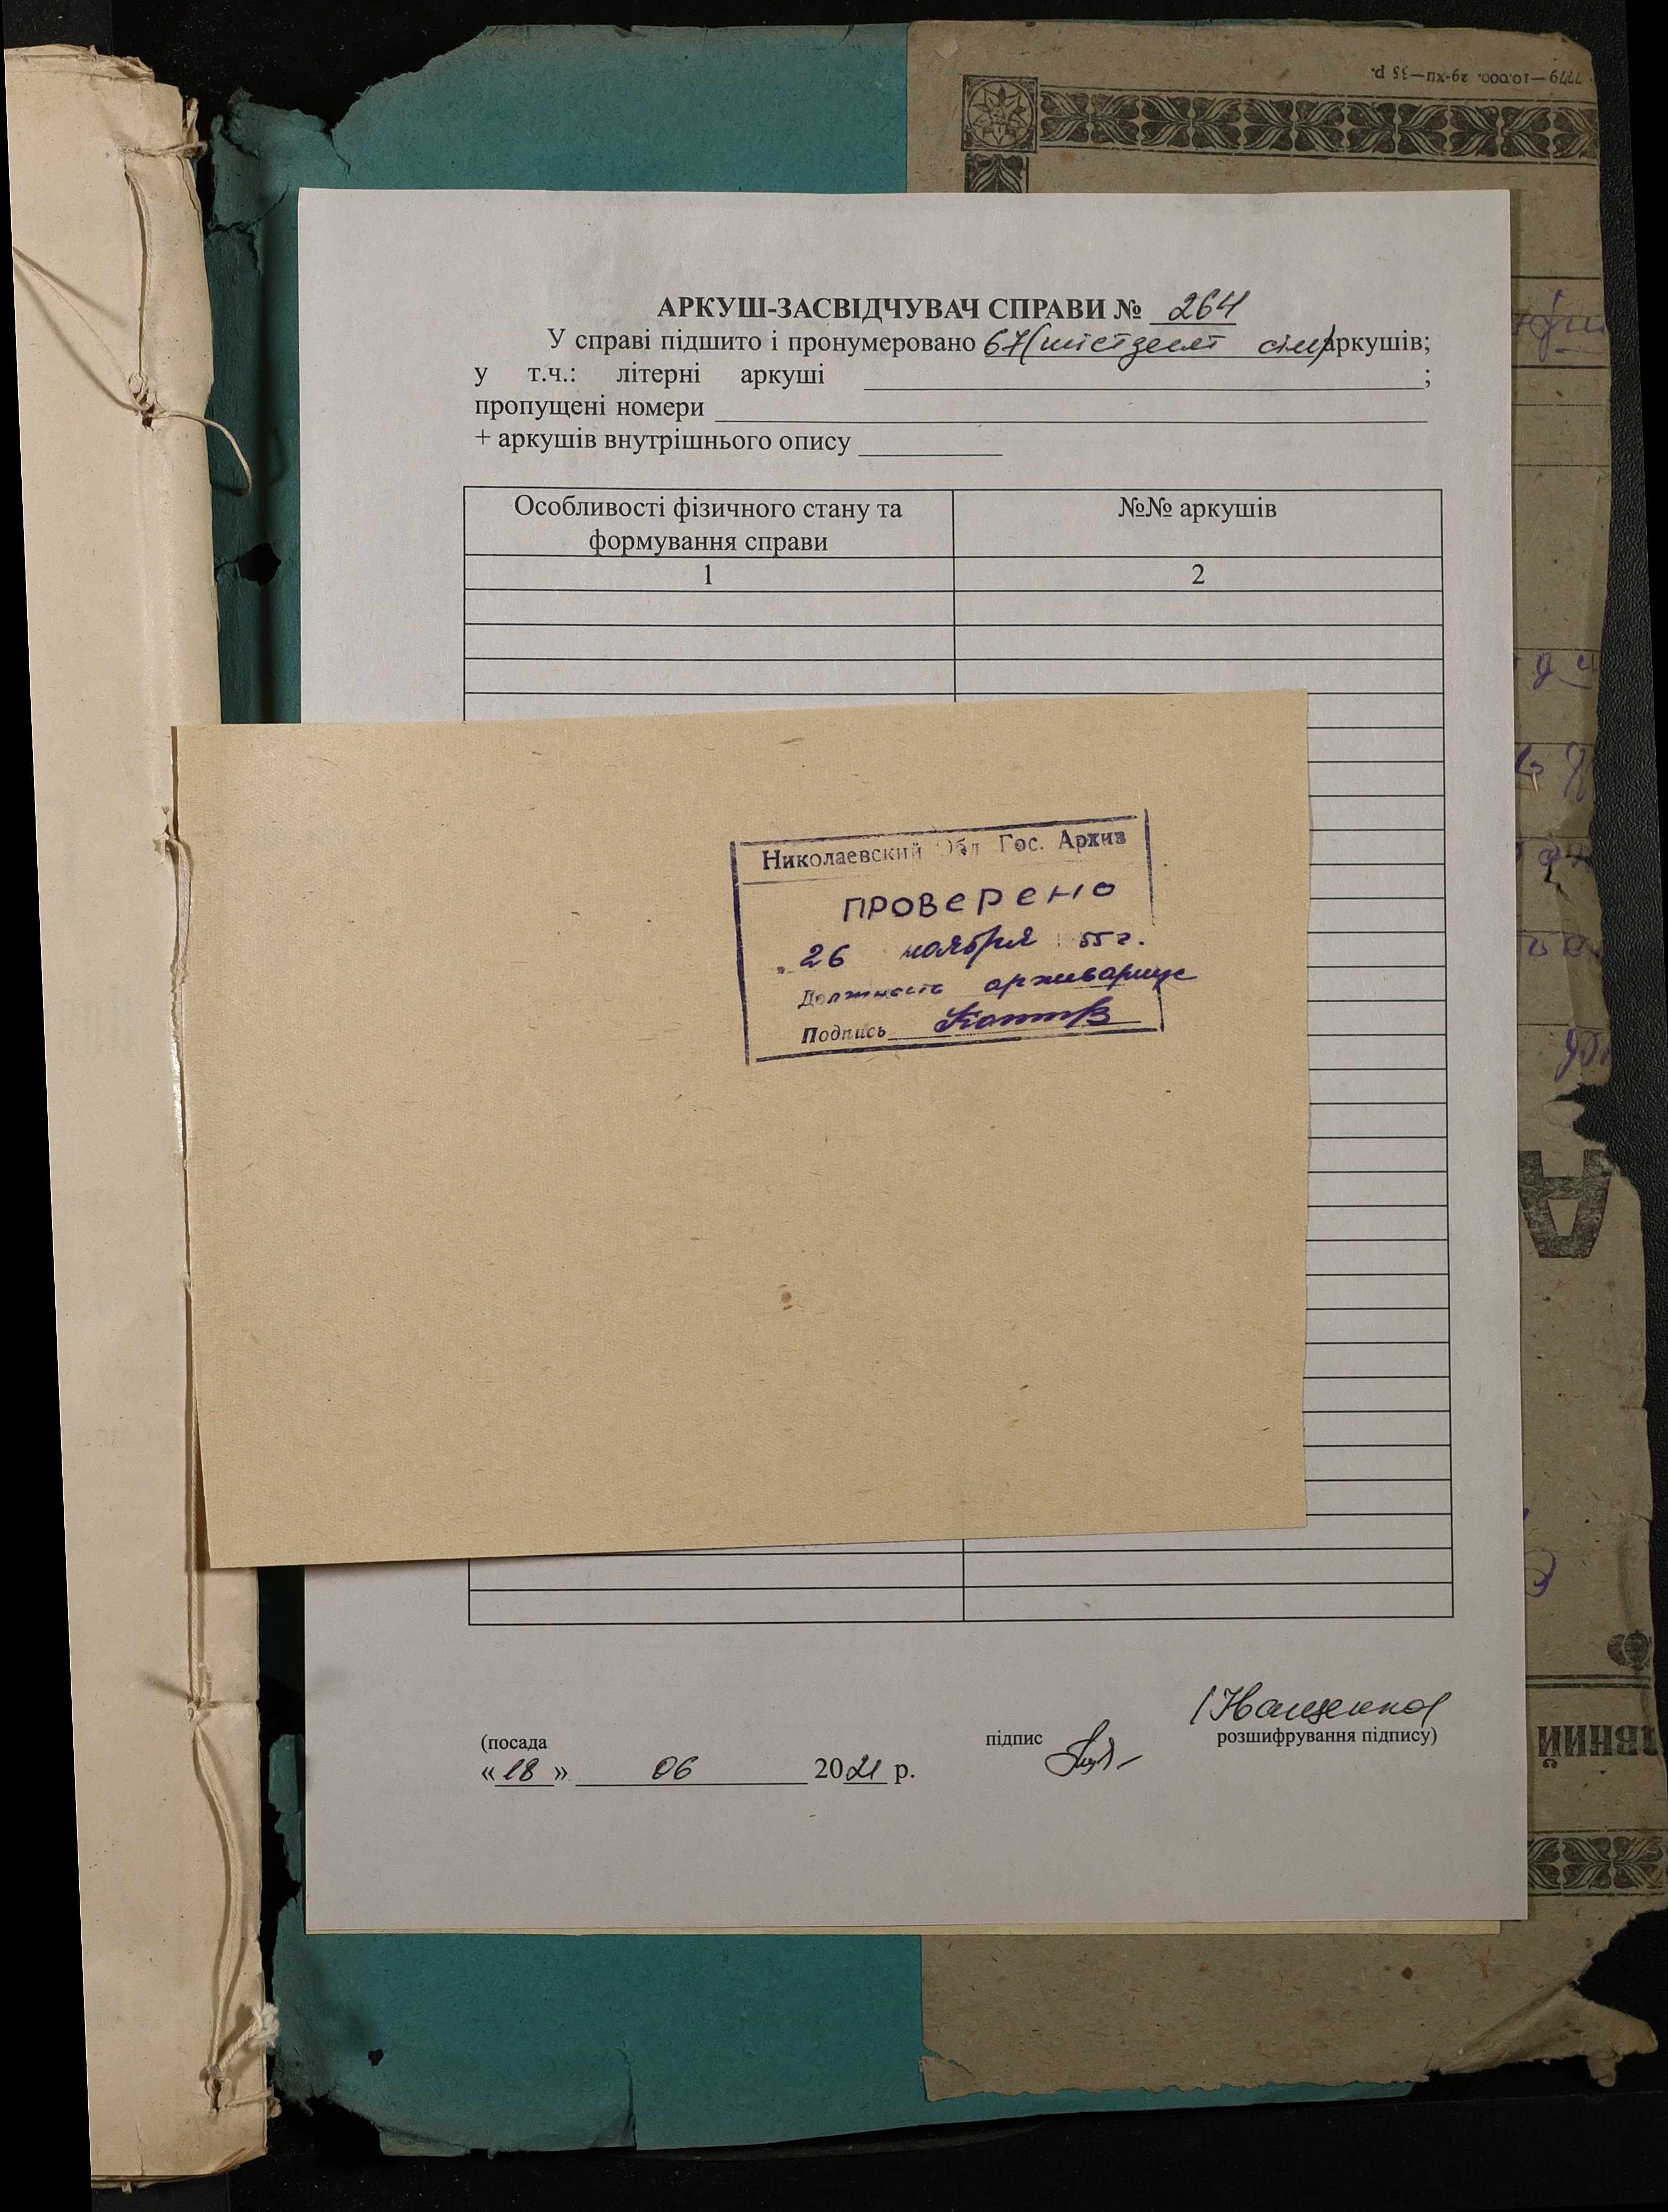 7779—10.000. 29-XII—35 р.
АРКУШ-ЗАСВІДЧУВАЧ СПРАВИ № 264
У справі підшито і пронумеровано 67 (шістдесят сім) аркушів;
у т.ч.: літерні аркуші ;
пропущені номери
+ аркушів внутрішнього опису
Особливості фізичного стану та формування справи
№№ аркушів
1
2
Николаевский Обл Гос. Архив
проверено
26 ноября 55 г.
Должность архивариус
Подпись
А
ВНИЙ
(посада
підпис
розшифрування підпису)
«18» 06 2021 р.